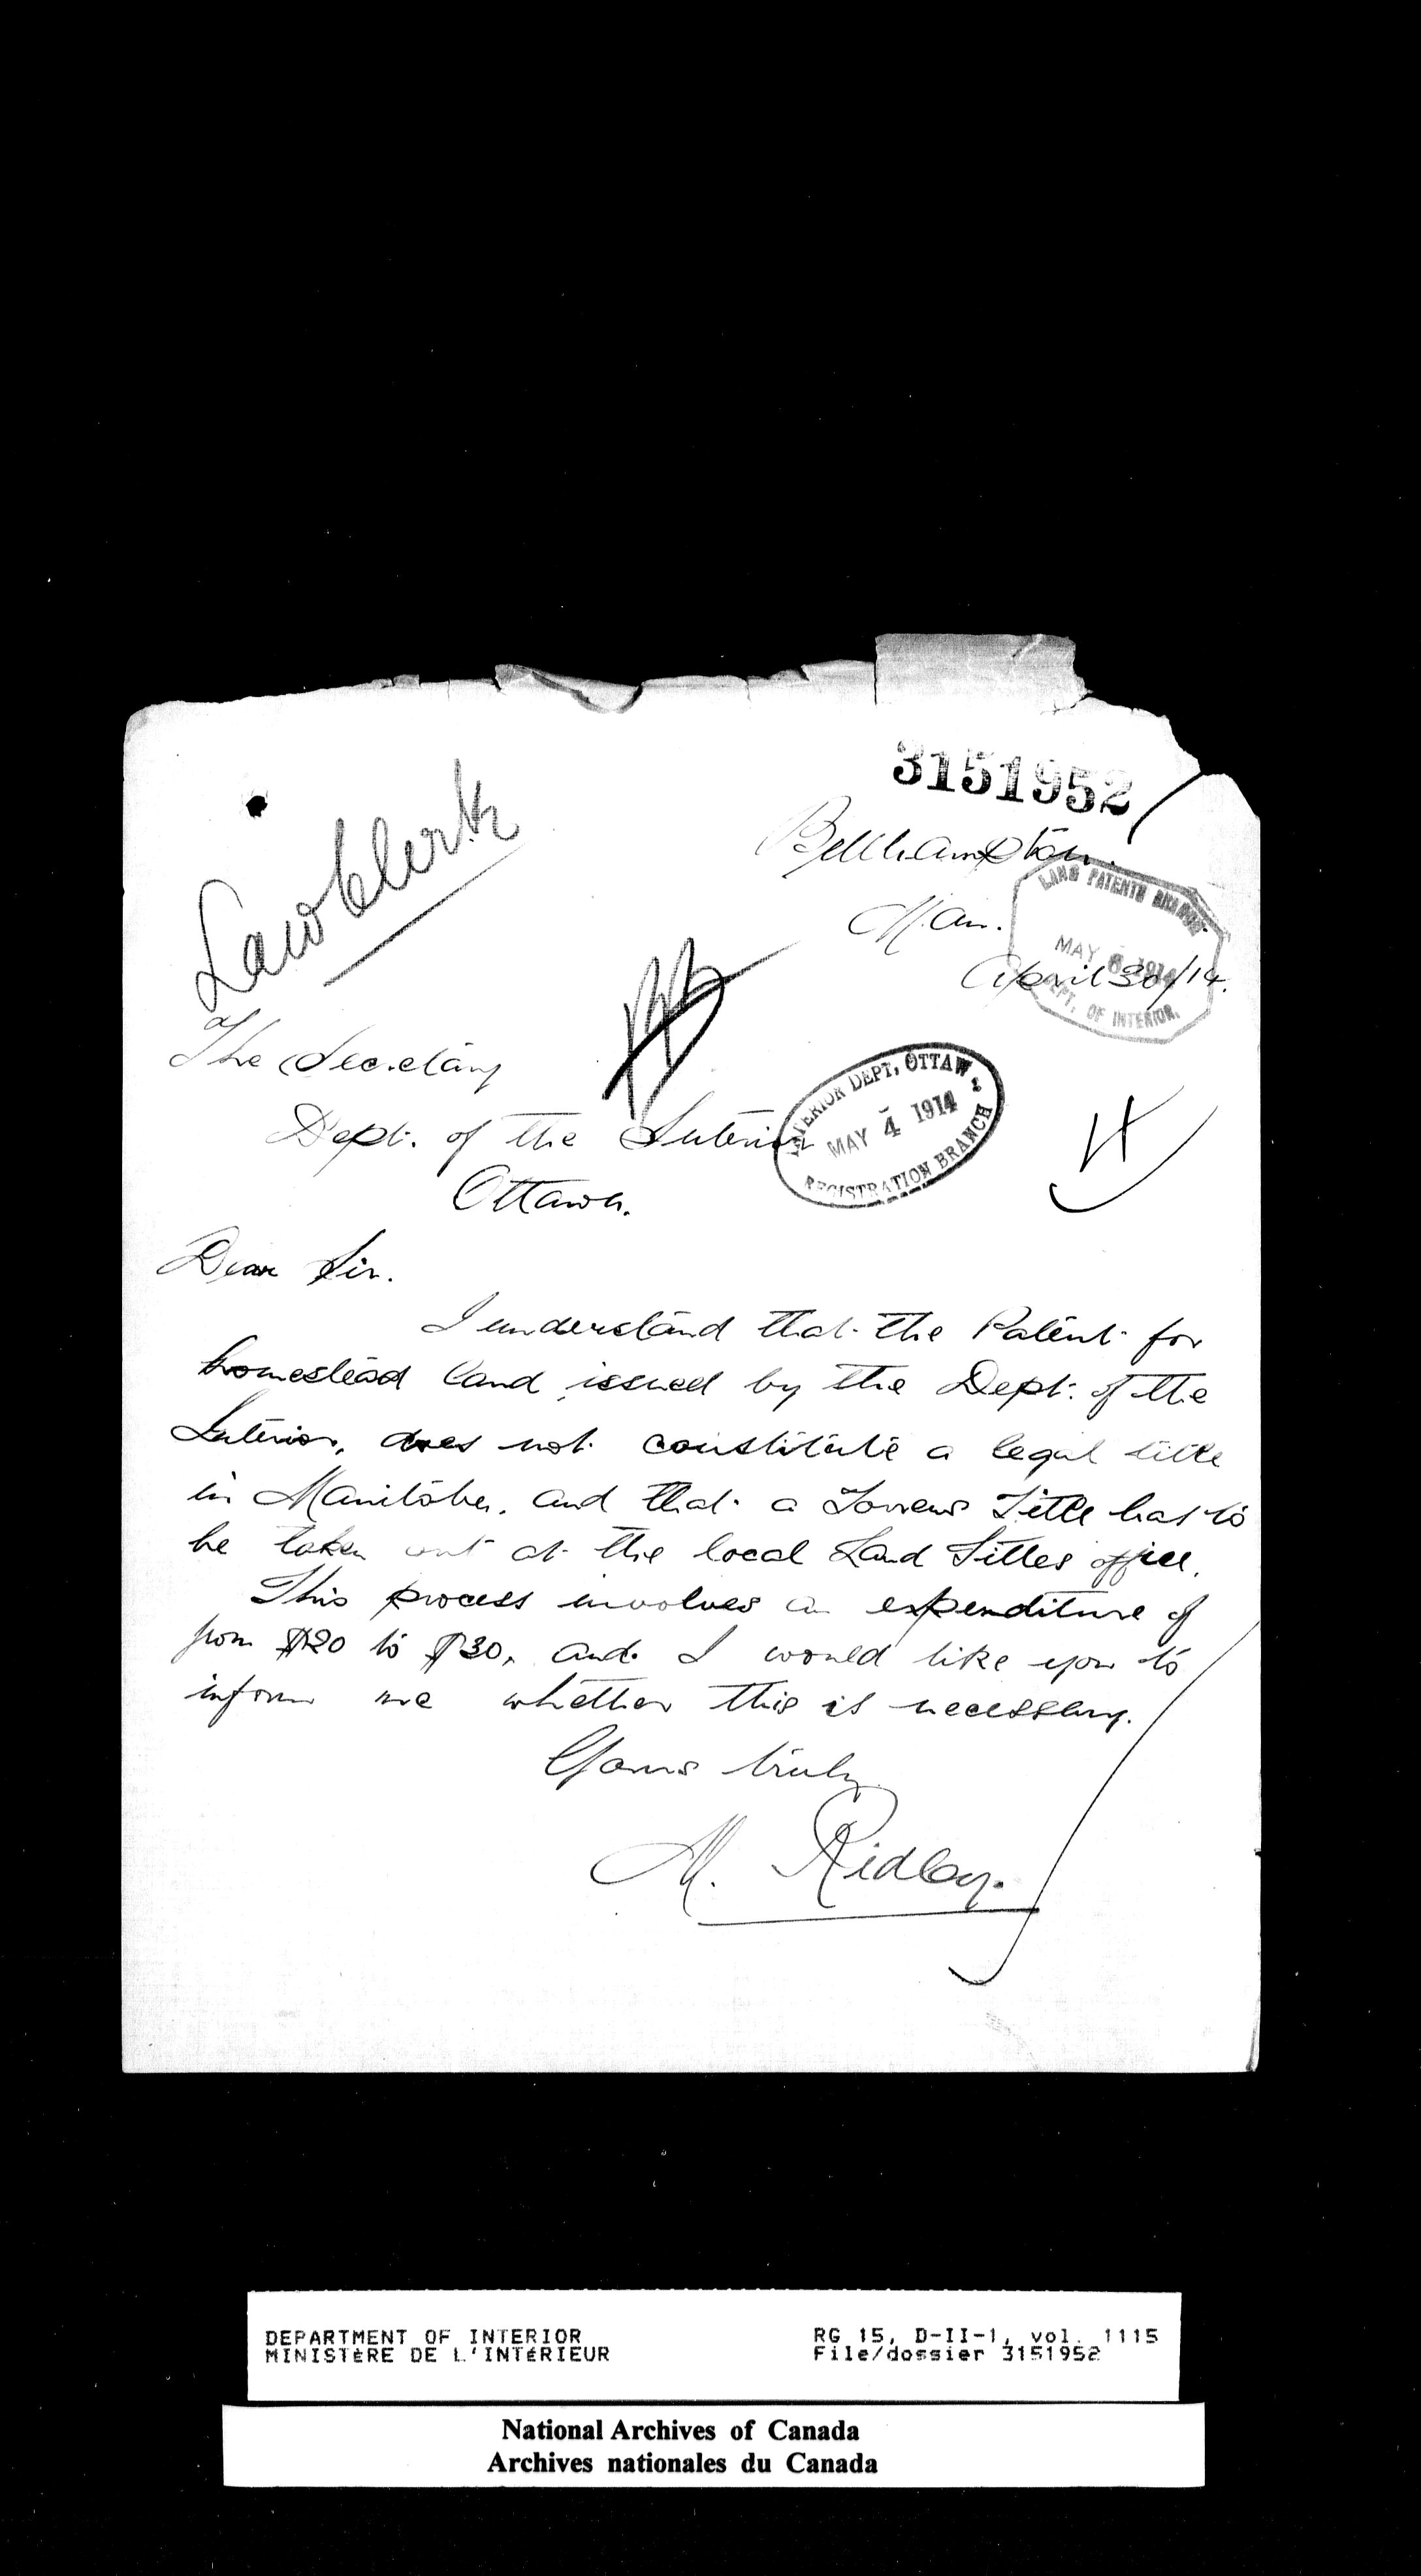 3151952
Law Clerk
Bellhampton.
Man.
LAND PATENTS BRANCH
MAY 6 1914
DEPT. OF INTERIOR.
April 30/14.
The Secretary
INTERIOR DEPT, OTTAWA
MAY 4 1914
REGISTRATION BRANCH
Dept. of the Interior
Ottawa.
Dear Sir.
I understand that the Patent for
homestead land issued by the Dept. of the
Interior, does not constitute a legal title
in Manitoba, and that a Torrens Title has to
be taken out at the local Land Titles office.
This process involves an expenditure of
from $20 to $30, and I would like you to
inform me whether this is necessary.
Yours truly
M. Ridley.
DEPARTMENT OF INTERIOR
MINISTÈRE DE L'INTÉRIEUR
RG 15, D-II-1, vol. 1115
File/dossier 3151952
National Archives of Canada
Archives nationales du Canada